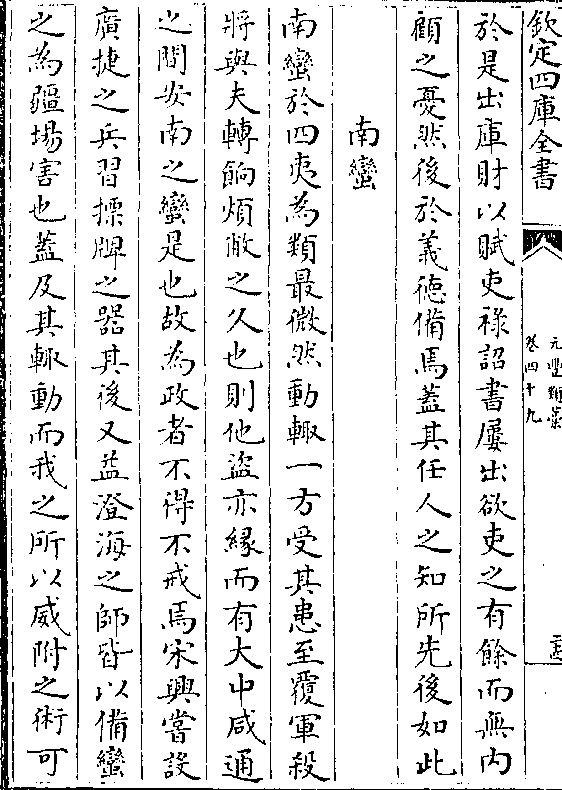 欽定四庫全書
元豐類藁
卷四十九
於是出庫財以賦吏祿詔書屢出欲吏之有餘而無内
顧之憂然後於義徳備焉蓋其任人之知所先後如此
南蠻
南蠻於四夷為類最微然動輙一方受其患至覆軍殺
將與夫轉餉煩敝之久也則他盜亦緣而有大中咸通
之間安南之蠻是也故為政者不得不戒焉宋興嘗設
廣捷之兵習摽牌之器其後又益澄海之師皆以備蠻
之為疆場害也蓋及其輙動而我之所以威附之術可